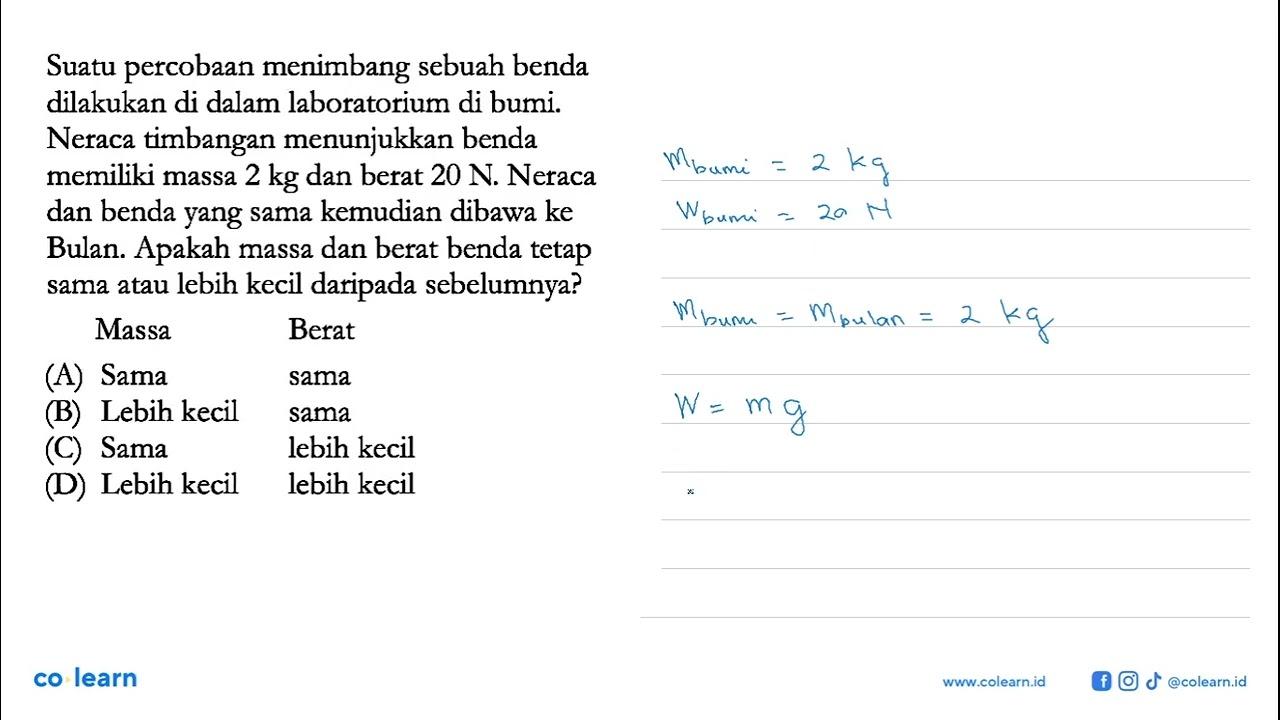 Suatu percobaan menimbang sebuah benda
dilakukan di dalam laboratorium di bumi.
Neraca timbangan menunjukkan benda
memiliki massa 2 kg dan berat 20 N. Neraca
dan benda yang sama kemudian dibawa ke
Bulan. Apakah massa dan berat benda tetap
sama atau lebih kecil daripada sebelumnya?
Massa Berat
(A) Sama sama
(B) Lebih kecil sama
(C) Sama lebih kecil
(D) Lebih kecil lebih kecil
m bumi = 2 kg
W bumi = 20 N
m bumi = m bulan = 2 kg
W = m g
co learn
www.colearn.id
@colearn.id